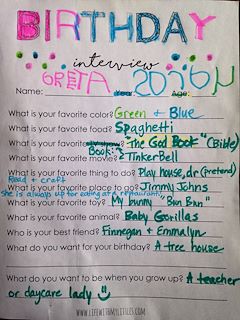 BIRTHDAY
interview
GRETA 2026
Name: Year: Age:
What is your favorite color? Green + Blue
What is your favorite food? Spaghetti
What is your favorite The God Book" (Bible)
Book:
What is your favorite movie? TinkerBell
What is your favorite thing to do? Play house, dr (pretend)
Read + craft
What is your favorite place to go? Jimmy Johns
She is always up for eating at a restaurant!
What is your favorite toy? My bunny "Bun Bun"
What is your favorite animal? Baby Gorillas
Who is your best friend? Finnegan + Emmalyn
What do you want for your birthday? A tree house
What do you want to be when you grow up? A teacher
or daycare lady
WWW.LIFEWITHMYLITTLES.COM